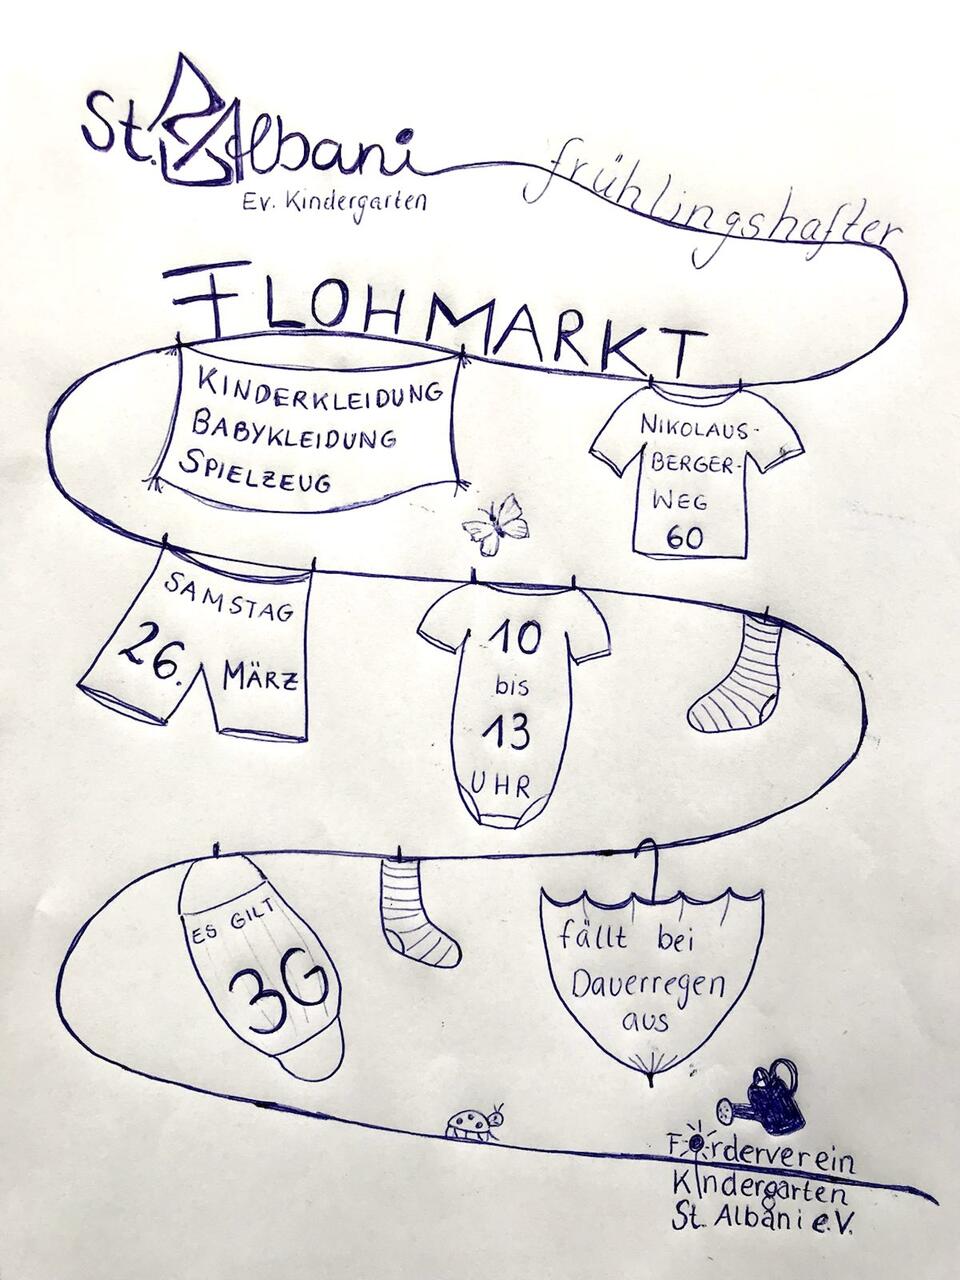 St. Albani
Ev. Kindergarten
frühlingshafter
FLOHMARKT
KINDERKLEIDUNG
BABYKLEIDUNG
SPIELZEUG
NIKOLAUS-
BERGER-
WEG
60
SAMSTAG
26. MÄRZ
10
bis
13
UHR
ES GILT
3G
fällt bei
Dauerregen
aus
Förderverein
Kindergarten
St. Albani e.V.